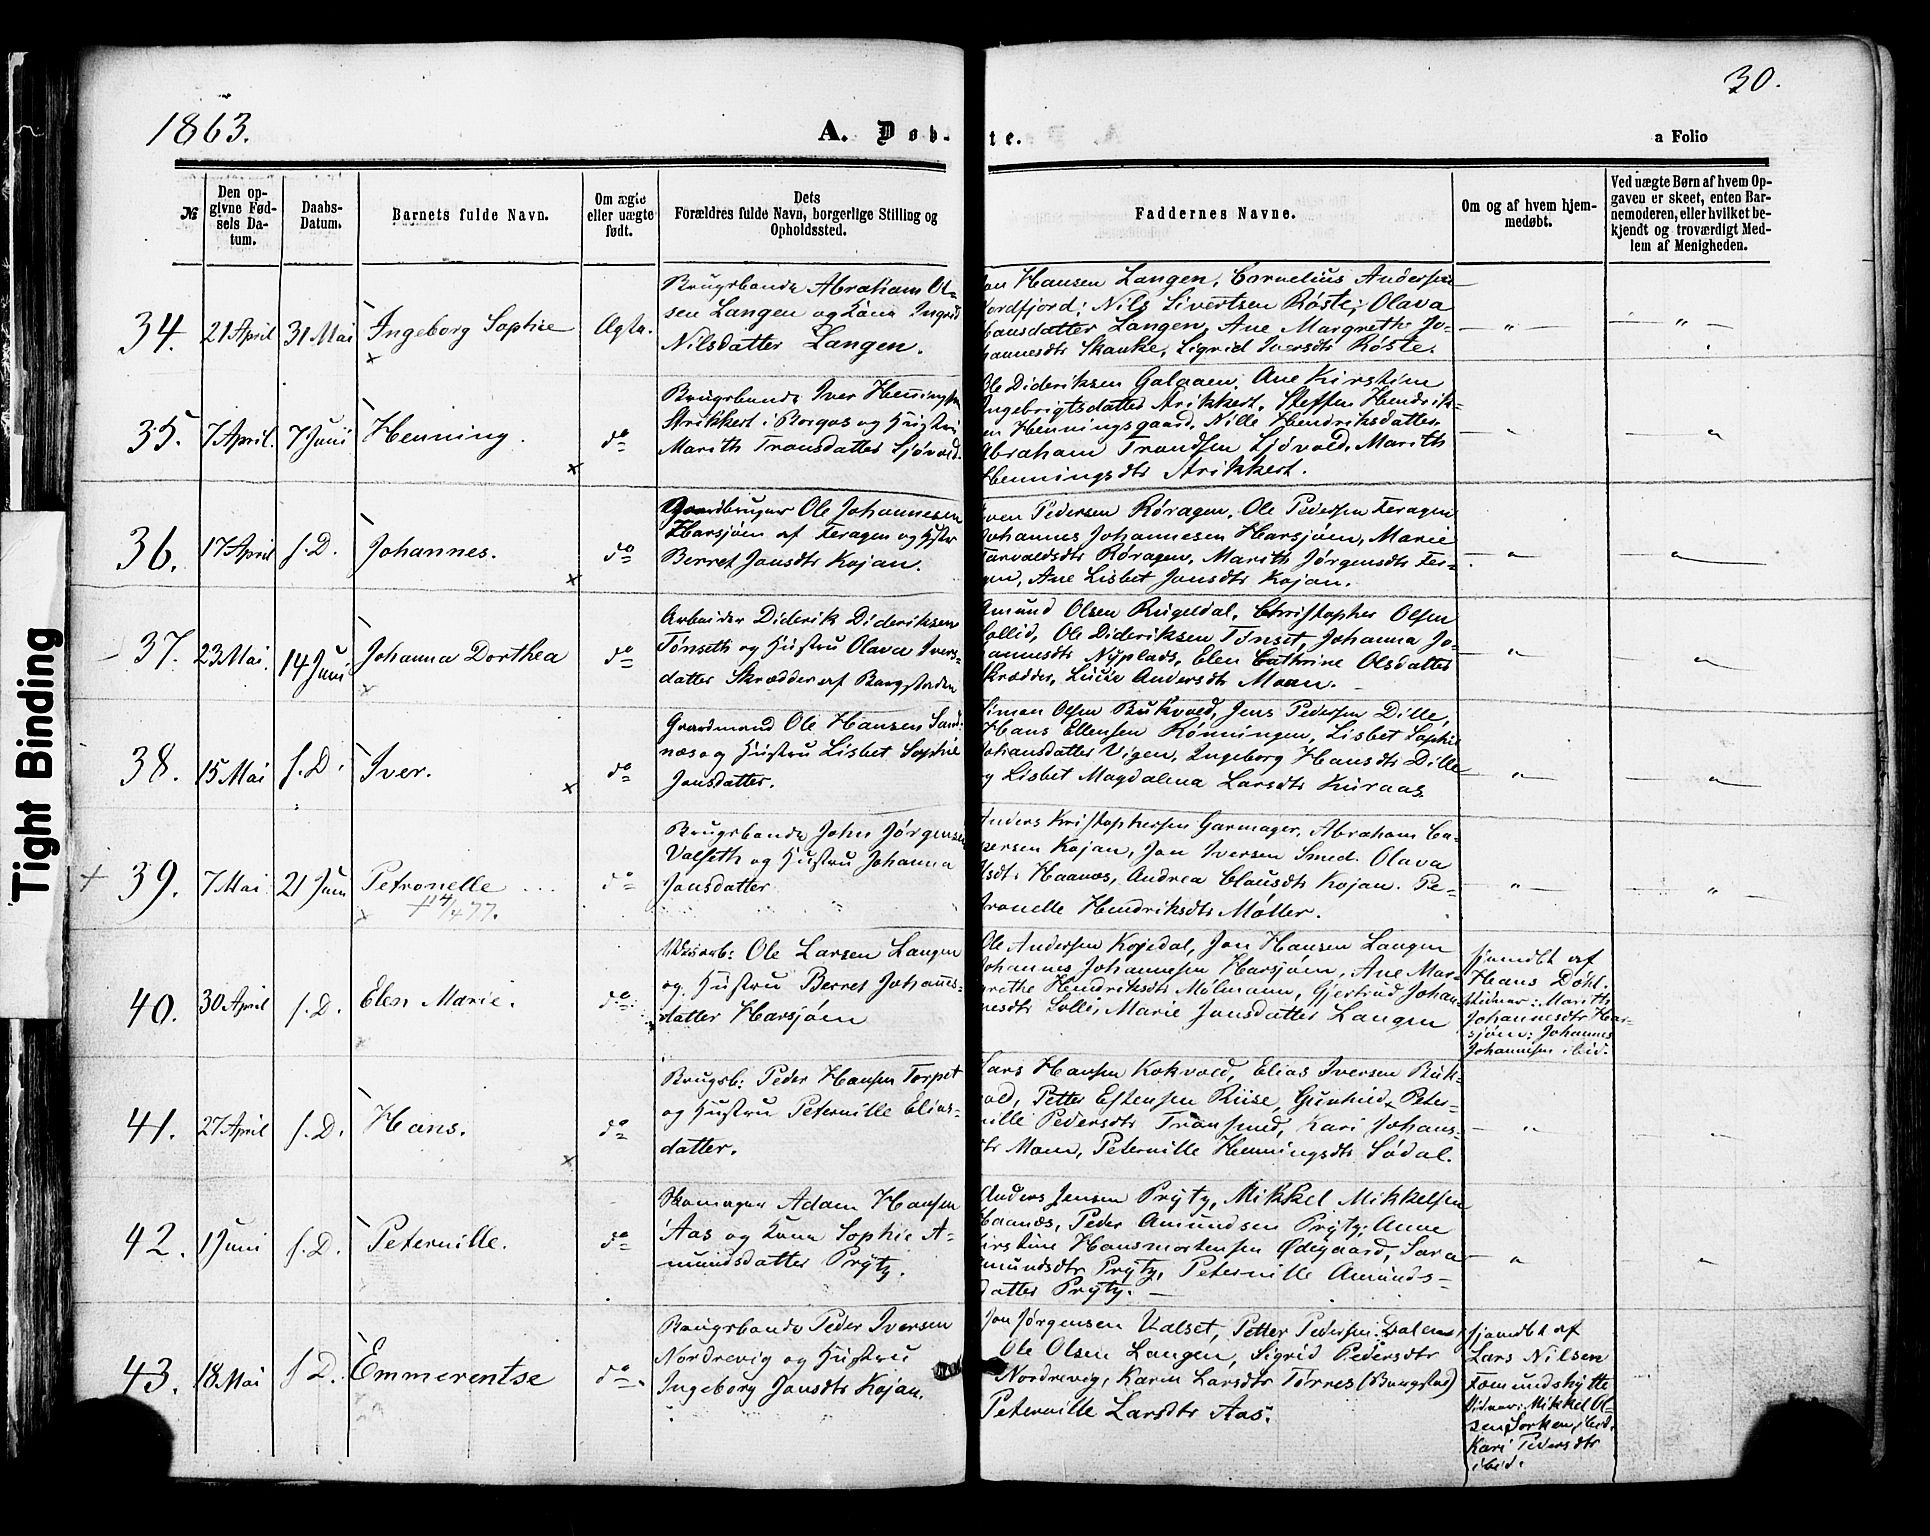 30.
1863.
A. Døb-
te.
a Folio
№
Den op-
givne Fød-
sels Da-
tum.
Daabs-
Datum.
Barnets fulde Navn.
Om ægte
eller uægte
født.
Dets
Forældres fulde Navn, borgerlige Stilling og
Opholdssted.
Faddernes Navne.
Om og af hvem hjem-
medøbt.
Ved uægte Børn af hvem Op-
gaven er skeet, enten Bar-
nemoderen, eller hvilket be-
kjendt og troværdigt Med-
lem af Menigheden.
34. 21 April 31 Mai Ingeborg Sophie Ægte.
Brugsbonde Abraham Ol-
sen Langen og Kone Ingrid
Nilsdatter Langen.
Hansen Langen, Cornelius Andersen
Nordfjord; Nils Sivertsen Røste; Olava
Hansdatter Langen, Ane Margrethe Jo-
hannesdtr Skanke, Sigrid Iversdtr Røste.
35. 7 April. 7 Juni Henning. do
Brugsbonde Iver Henningsen
Strikkert i Borgos og Hustru
Marith Tronsdatter Sjøvold.
Ole Dideriksen Galaaen, Ane Kirstine
Ingebrigtsdatter Strikkert, Steffen Hendrik-
sen Henningsgaard, Nille Hendriksdatter
Abraham Trondsen Sjøvold, Marith
Henningsdtr Strikkert.
36. 17 April f. D. Johannes. do
Gaardbruger Ole Johannesen
Harsjøen af Feragen og Hustru
Berret Jonsdtr Kojan.
Even Pedersen Røragen, Ole Pedersen Feragen
Johannes Johannesen Harsjøen, Marie
Tarvaldsdtr Røragen, Marith Jørgensdtr Fer-
gen, Ane Lisbet Jonsdtr Kojan.
37. 23 Mai. 14 Juni Johanna Dorthea do
Arbeider Diderik Dideriksen
Tønseth og Hustru Olava Ivers-
datter Skrædder af Bergstaden
Amund Olsen Rugeldal, Christopher Olsen
Sollid, Ole Dideriksen Tønset, Johanna Jo-
hannesdtr Nyplads, Elen Cathrine Olsdatter
Skrædder, Luise Andersdtr Moen.
38. 15 Mai f. D. Iver. do
Gaardmand Ole Hansen Sand-
næs og Hustru Lisbet Sophie
Jonsdatter.
Simon Olsen Bukvold, Jens Pedersen Dille,
Hans Ellensen Rønningen, Lisbet Sophie
Johansdatter Vigen, Ingeborg Hansdtr Dille
og Lisbet Magdalena Larsdtr Kuraas.
39. 7 Mai 21 Juni Petronelle do
+ 14/4 77.
Brugsbonde John Jørgensen
Valseth og Hustru Johanna
Jonsdatter
Anders Kristophersen Garmager, Abraham Ca-
spersen Kojan, Jon Iversen Smed. Olava
Olsdtr Haanæs, Andrea Clausdtr Kojan. Pe-
tronelle Hendriksdtr Møller.
40. 30 April f. D. Elen Marie. do
Ole Larsen Langen
og Hustru Berret Johannes-
datter Harsjøen
Ole Andersen Kojedal, Jon Hansen Langen
Johannes Johannesen Harsjøen, Ane Mar-
grethe Hendriksdtr Mølmann, Gjertrud Johan-
nesdtr Solli, Marie Jonsdatter Langen
hjemdbt af
Hans Döhl.
Vidner: Marith
Johannesdtr Har-
sjøen: Johannes
Johannesen ibid.
41. 27 April f. D. Hans. do
Brugsb: Peder Hansen Torpet
og Hustru Peternille Elias-
datter.
Lars Hansen Kokvold, Elias Iversen Buk-
vold, Petter Estensen Riise, Gunhild Peter-
nille Pedersdtr Tronsmed, Kari Johans-
dtr Moen, Peternille Henningsdtr Sødal.
42. 1 Juni f. D. Peternille. do
Skomager Adam Hansen
Aas og Kone Sophie A-
mundsdatter Prÿtz.
Anders Jensen Prÿtz, Mikkel Mikkelsen
Haanæs, Peder Amundsen Prÿtz, Anne
Kirstine Hansmortensen Ødegaard, Sara
Amundsdtr Prÿtz, Peternille Amunds-
datter Prÿtz.
43. 18 Mai f D. Emmerentse do
Brugsbonde Peder Iversen
Nordrevig og Hustru
Ingeborg Jonsdtr Kojan.
Jon Jørgensen Valset, Petter Pedersen Dalen
Ole Olsen Langen, Sigrid Pedersdtr
Nordrevig, Karen Larsdtr Tørres (Bergstad)
Peternille Larsdtr Aas.
hjemdbt af
Lars Nilsen
Fæmundshytte
Vidner: Mikkel Ol-
sen Sorken ibid.
Kari Pedersdtr
ibid.
Tight Binding